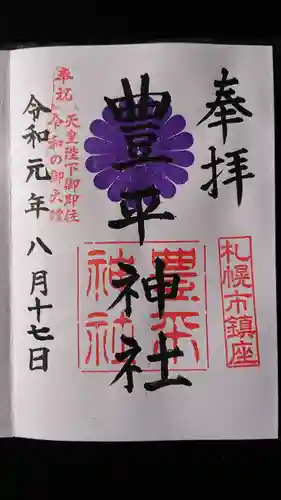 奉拝
札幌市鎮座
豊平神社
豊平神社
奉祝 天皇陛下御即位
令和の御大禮
令和元年八月十七日